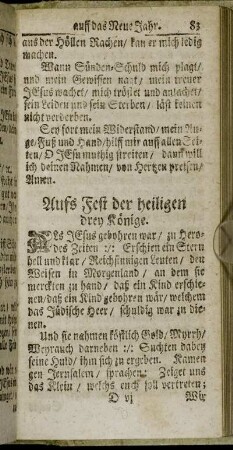 auff das Neue Jahr. 83
aus der Höllen Rachen, kan er mich ledig
machen.
Wann Sünden-Schuld mich plagt/
und mein Gewissen nagt/ mein treuer
JEsus wachet/ mich tröstet und anlachet/
sein Leiden und sein Sterben/ läßt keinen
nicht verderben.
Sey fort mein Widerstand/ mein Au-
ge/ Fuß und Hand/ hilff mir auff allen Sei-
ten/ O JEsu muthig streiten/ dann will
ich deinen Nahmen/ von Hertzen preisen/
Amen.
Aufs Fest der heiligen
drey Könige.
ALs JEsus gebohren war/ zu Hero-
des Zeiten :/: Erschien ein Stern
hell und klar/ Reichsinnigen Leuten/ den
Weisen in Morgenland/ an dem sie
merckten zu hand/ daß ein Kind erschie-
nen/ daß ein Kind gebohren wär/ welchem
das Jüdische Heer/ schuldig war zu die-
nen.
Und sie nahmen köstlich Gold/ Myrrh/
Weyrauch darneben :/: Suchten dabey
seine Huld/ ihm sich zu ergeben. Kamen
gen Jerusalem/ sprachen: Zeiget uns
das Klein/ welchs euch soll vertreten;
D vj Wir